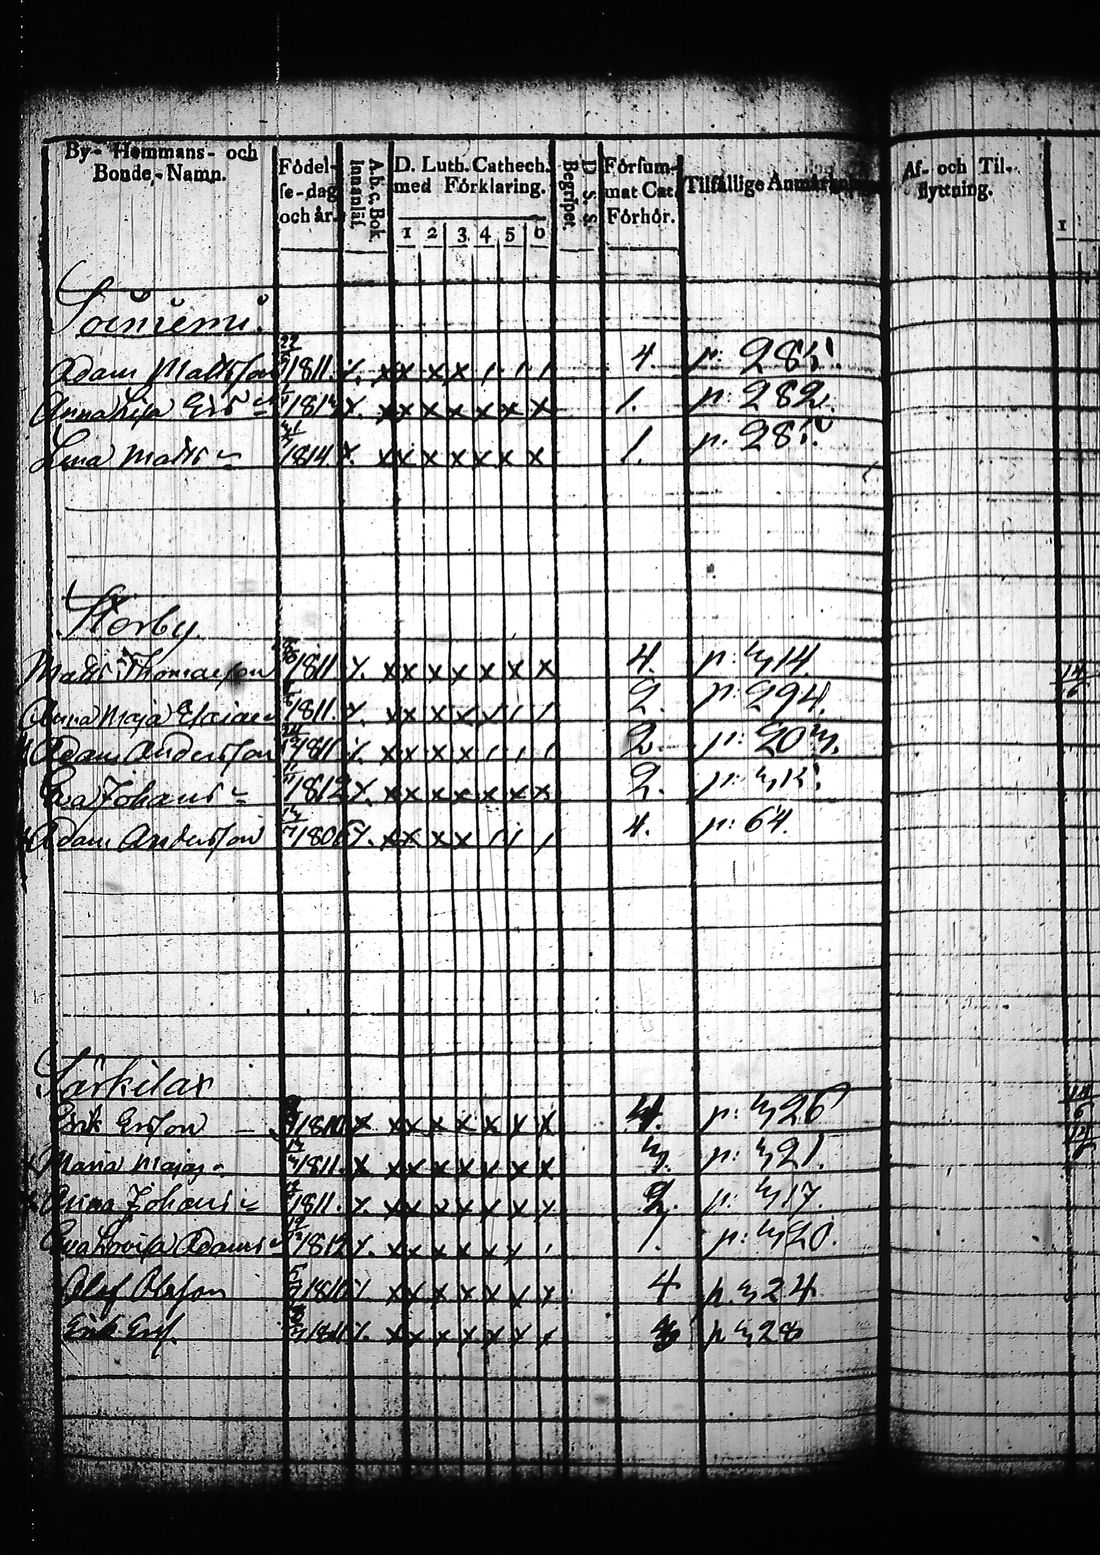 By- Hemmans- och Bonde-Namn. Födelse-dag och år. A.b.c. Bok. Innanläs. D. Luth. Cathech. med Förklaring. D. S. S. Begripet. Försummat Cat. Förhör. Tilfällige Anmärkningar Af- och Tilflyttning.
1 2 3 4 5 6 1
Soiniemi.
Adam Mattsson 1811. x x x x 4.
Anna Lisa Ers x x x x x x x 1. p: 282.
Lena Matts 1814. x x x x x x x 1.
Storby
Matts Thomasson 1811 x x x x x x x 4. p: 314.
Anna Maja 1811. x x x x 2. p: 294.
Adam Andersson x x x x 2. p: 203.
Eva Johans 1812 x x x x x x x 2.
Adam Andersson x x x x 4. p: 64.
Särkilax
Erik Ersson 1810 x x x x x x x x 4. p: 326
Maria Majas 1811. x x x x x x x x 3. p: 321.
Anna Johans 1811. x x x x x x x 2. p: 317.
Eva Lovisa Adams 1812 x x x x x x 1. p: 320.
Olof Olofson x x x x x x x 4 p. 324
Erik Ers. x x x x x x x p 328